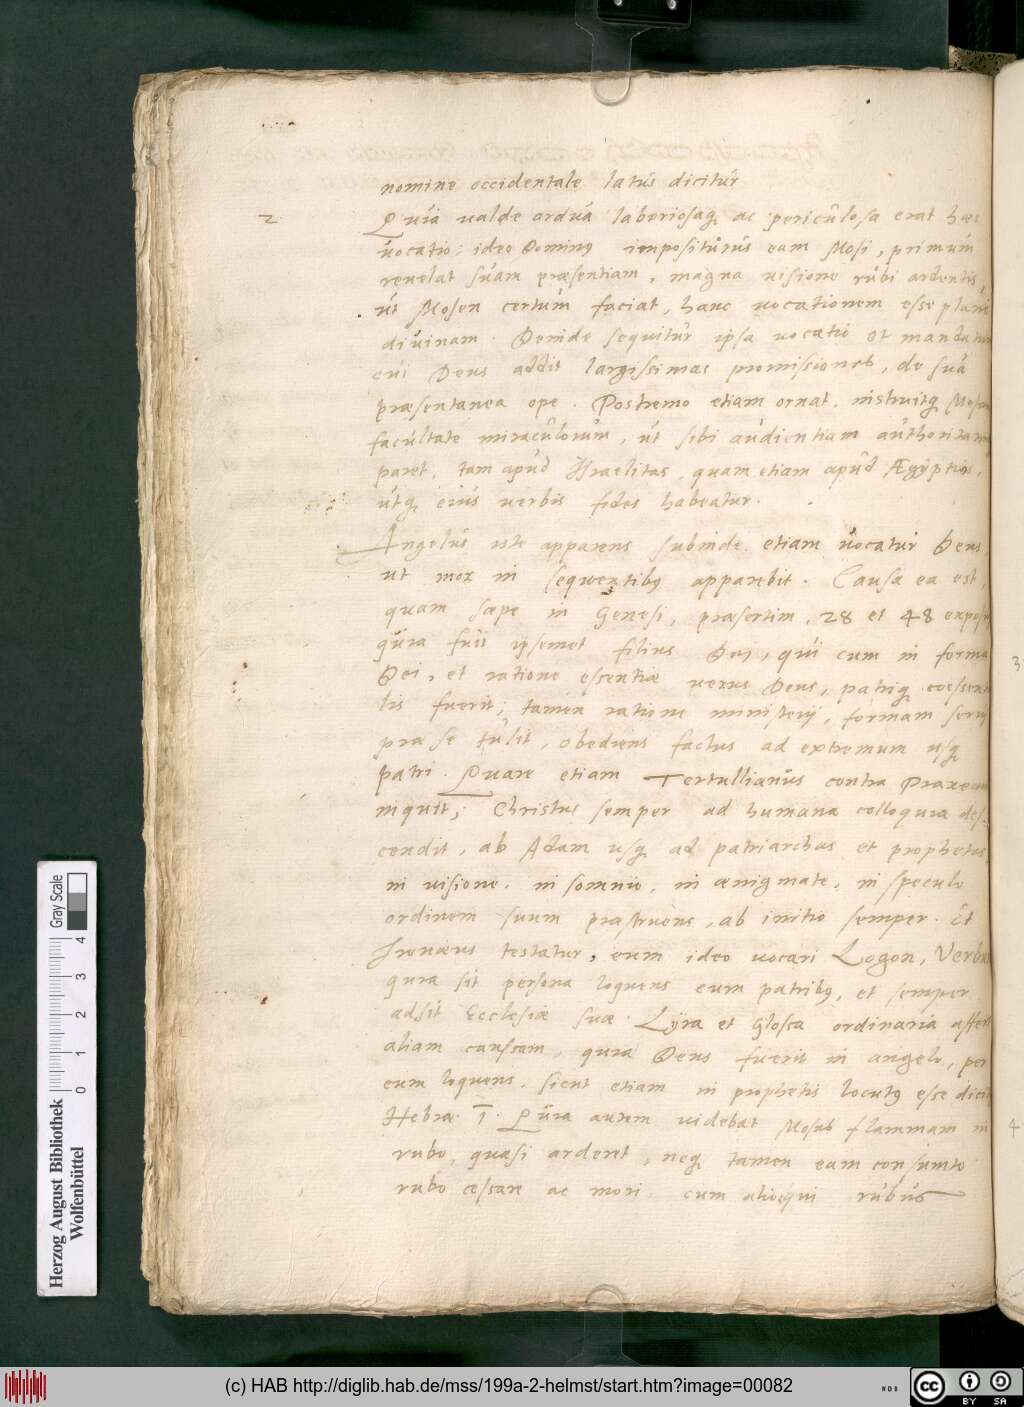 nomine occidentale latus dicitur
2
Quia valde ardua laboriosaq ac periculosa erat haec
vocatio: ideo Dominus impositurus eam Mosi, primum
revelat suam praesentiam, magna visione rubi ardentis,
ut Mosen certum faciat, hanc vocationem esse plane
divinam. Deinde sequitur ipsa vocatio et mandatum
cui Deus addit largissimas promissiones, de sua
praesentanea ope. Postremo etiam ornat, instruitq Mosen
facultate miraculorum, ut sibi audientiam authoritatem
paret, tam apud Israelitas, quam etiam apud Ægyptios,
utq eius verbis fides habeatur.
Angelus iste apparens subinde etiam vocatur Deus
ut mox in sequentibus apparebit. Causa ea est,
quam saepe in Genesi, praesertim, 28 et 48 exposui
quia fuit ipsemet filius Dei, qui cum in forma
Dei, et ratione essentiae verus Deus, patriq coessentia
lis fuerit; tamen ratione ministerij, formam servi
prae se tulit, obediens factus ad extremum usq
patri. Quare etiam Tertullianus contra Praxeam
inquit; Christus semper ad humana colloquia des-
cendit, ab Adam usq ad patriarchas et prophetas
in visione, in somnio, in aenigmate, in speculo
ordinem suum praestruens, ab initio semper. Et
Irenaeus testatur, eum ideo vocari Logon, Verbum
quia sit persona loquens cum patribus, et semper
adsit Ecclesiae suae. Lyra et Glossa ordinaria affert
aliam caussam, quia Deus fuerit in angelo, per
eum loquens, sicut etiam in prophetis locutus esse dicit
Hebrae. 1. Quia autem videbat Moses flammam in
rubo, quasi arderet, neq tamen eam consumto
rubo cessare ac mori, cum alioqui rubus
3
4
Herzog August Bibliothek
Wolfenbüttel
0 1 2 3 4
Gray Scale
(c) HAB http://diglib.hab.de/mss/199a-2-helmst/start.htm?image=00082
cc BY SA